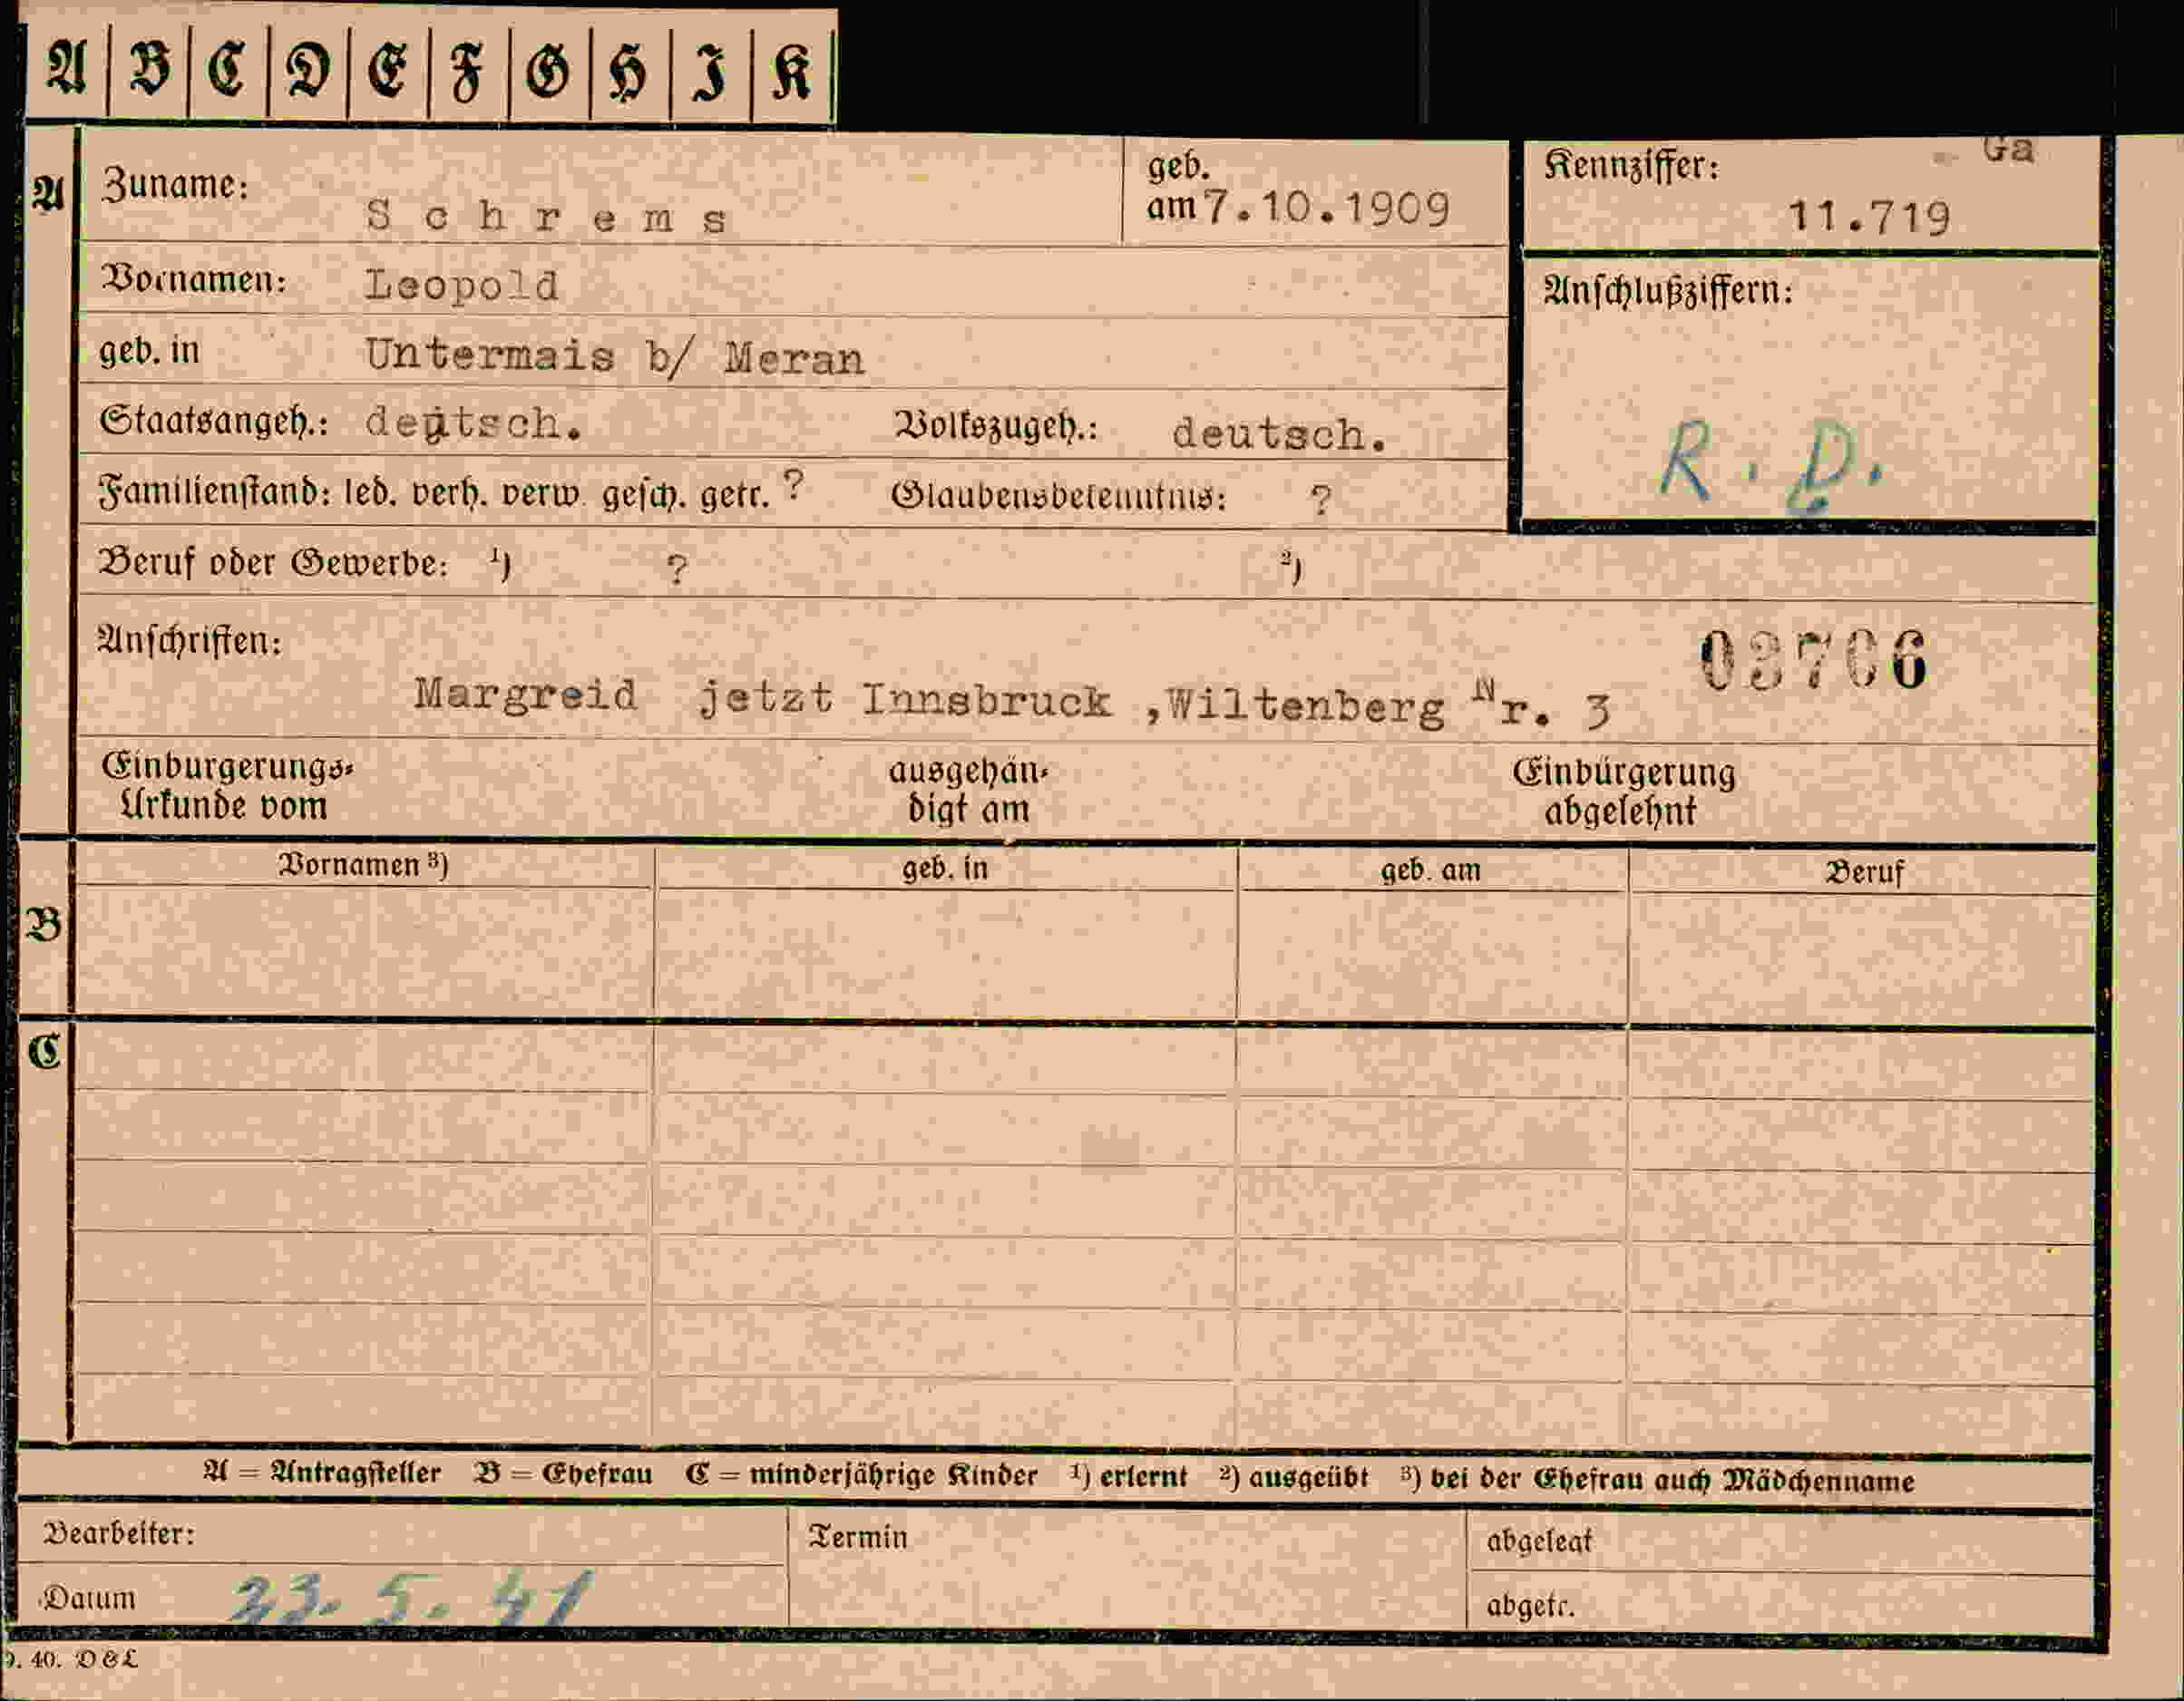 A B C D E F G H I K
A Zuname: Schrems geb. am 7.10.1909 Kennziffer: Ga 11.719
Vornamen: Leopold Anschlußziffern:
geb. in Untermais b/ Meran
Staatsangeh.: deutsch. Volkszugeh.: deutsch. R. D.
Familienstand: led. verh. verw. gesch. getr. ? Glaubensbekenntnis: ?
Beruf oder Gewerbe: 1) ? 2)
Anschriften: 03706
Margreid jetzt Innsbruck ,Wiltenberg Nr. 3
Einbürgerungs- ausgehän- Einbürgerung
Urkunde vom digt am abgelehnt
Vornamen 3) geb. in geb. am Beruf
B
C
A = Antragsteller B = Ehefrau C = minderjährige Kinder 1) erlernt 2) ausgeübt 3) bei der Ehefrau auch Mädchenname
Bearbeiter: Termin abgelegt
Datum 23. 5. 41 abgetr.
40. D&L